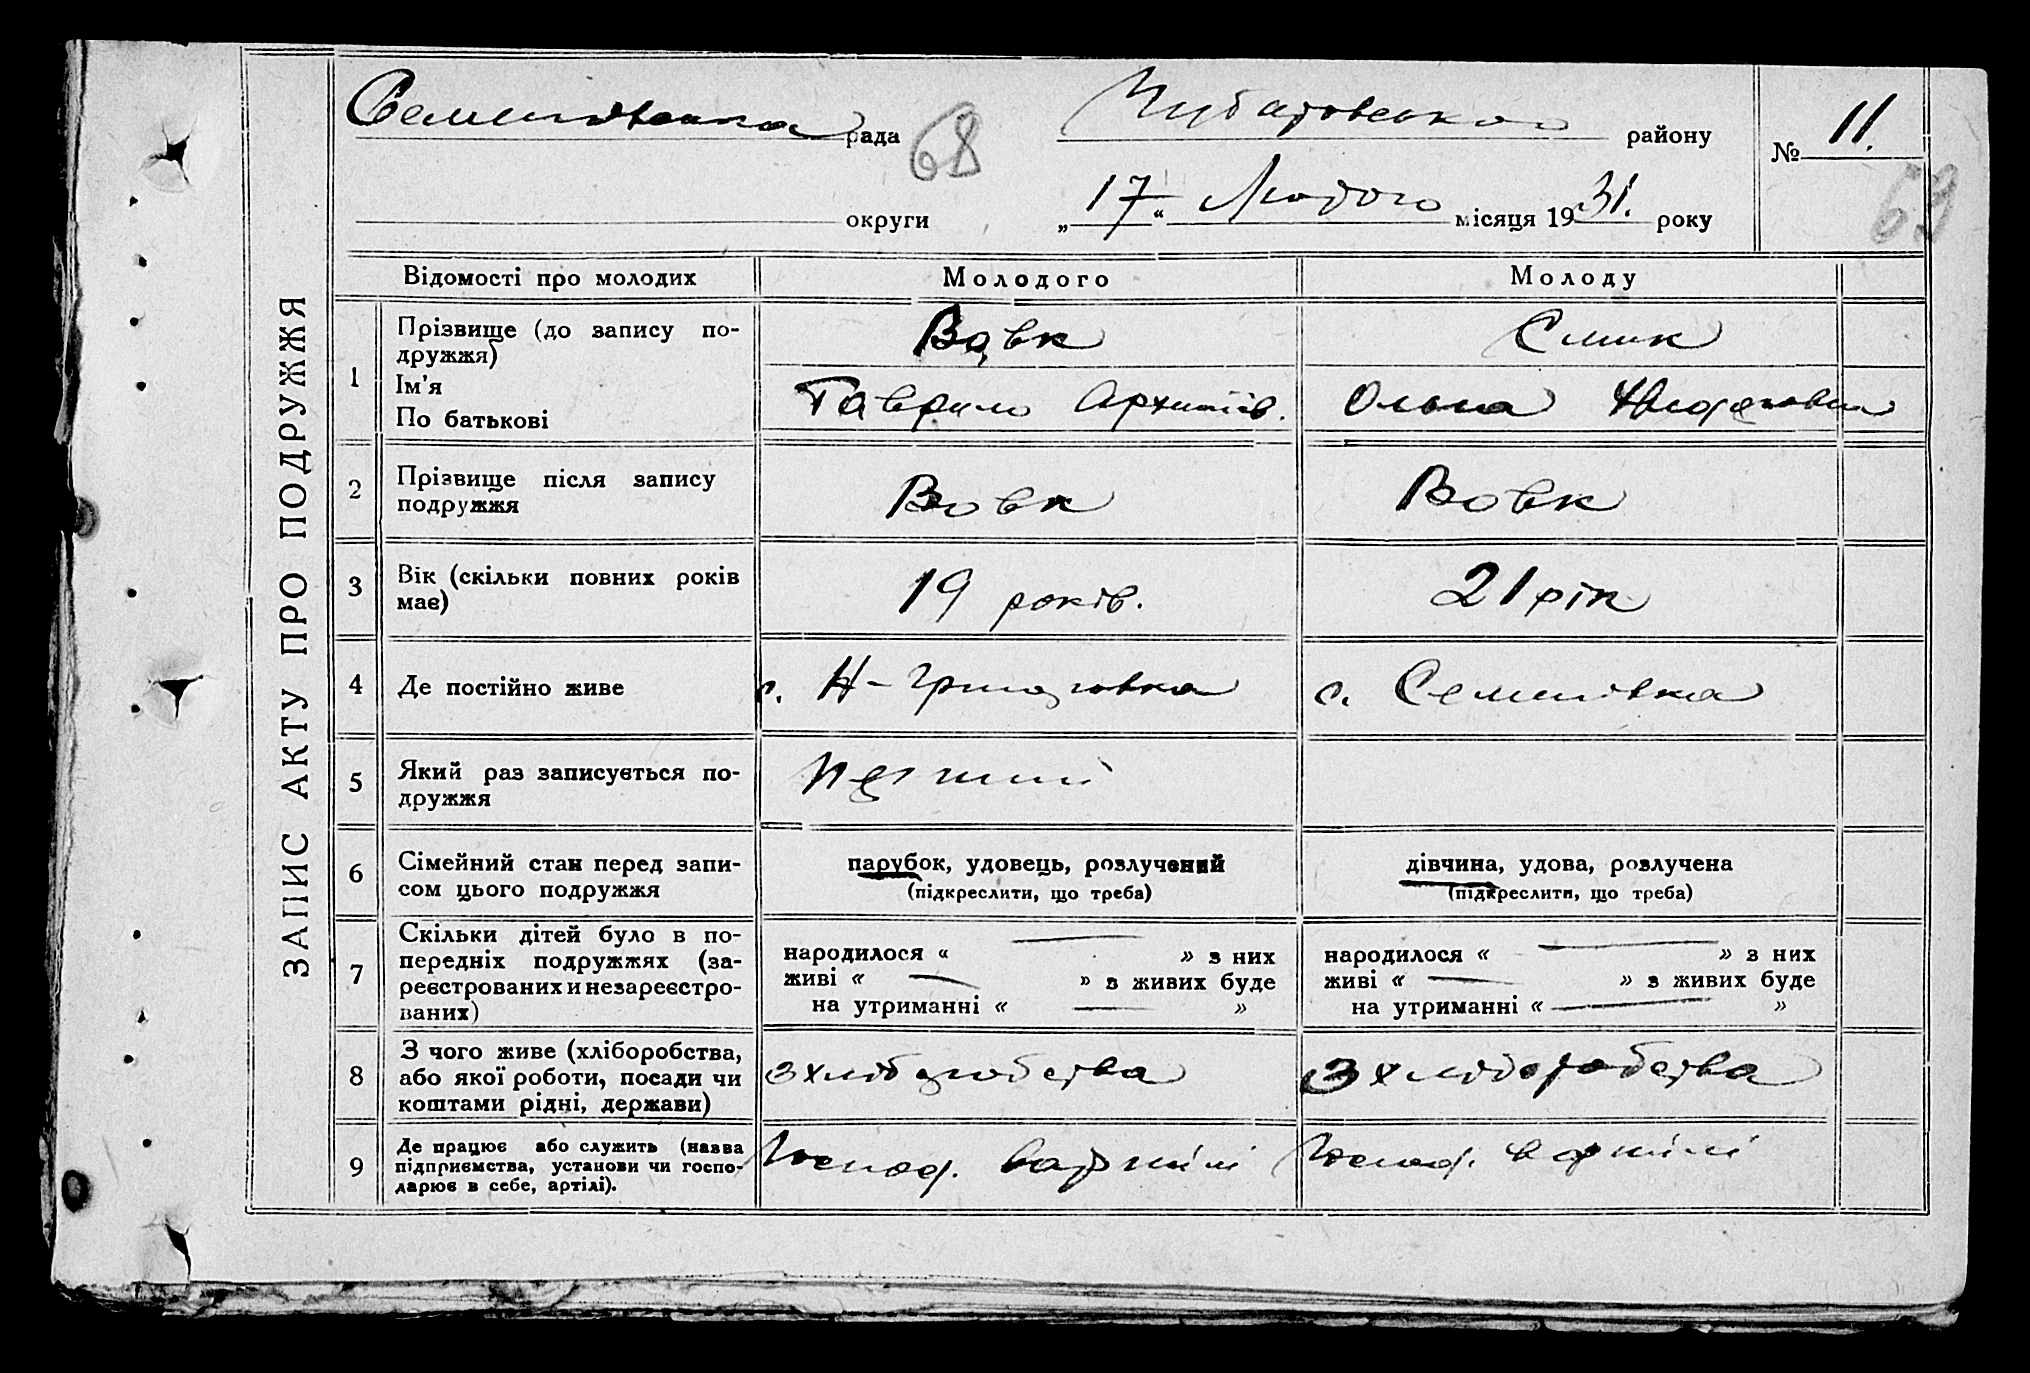 68
рада
Чубарівського району
№ 11.
69
округи
„17“ Лютого місяця 1931. року
ЗАПИС АКТУ ПРО ПОДРУЖЖЯ
Відомості про молодих
Молодого
Молоду
1
Прізвище (до запису по-
дружжя)
Ім'я
По батькові
Вовк
Гаврило Архипів.
Смик
Ольга
2
Прізвище після запису
подружжя
Вовк
Вовк
3
Вік (скільки повних років
має)
19 років.
21 рік
4
Де постійно живе
с. Н-Григоровка
с. Семенівка
5
Який раз записується по-
дружжя
Перший
6
Сімейний стан перед запи-
сом цього подружжя
парубок, удовець, розлучений
(підкреслити, що треба)
дівчина, удова, розлучена
(підкреслити, що треба)
7
Скільки дітей було в по-
передніх подружжях (за-
реєстрованих и незареєстро-
ваних)
народилося « — » з них
живі « — » з живих буде
на утриманні « — »
народилося « — » з них
живі « — » з живих буде
на утриманні « — »
8
З чого живе (хліборобства,
або якої роботи, посади чи
коштами рідні, держави)
з хліборобства
з хліборобства
9
Де працює або служить (назва
підприємства, установи чи госпо-
дарює в себе, артілі).
Господ. в артілі
Господ. в артілі